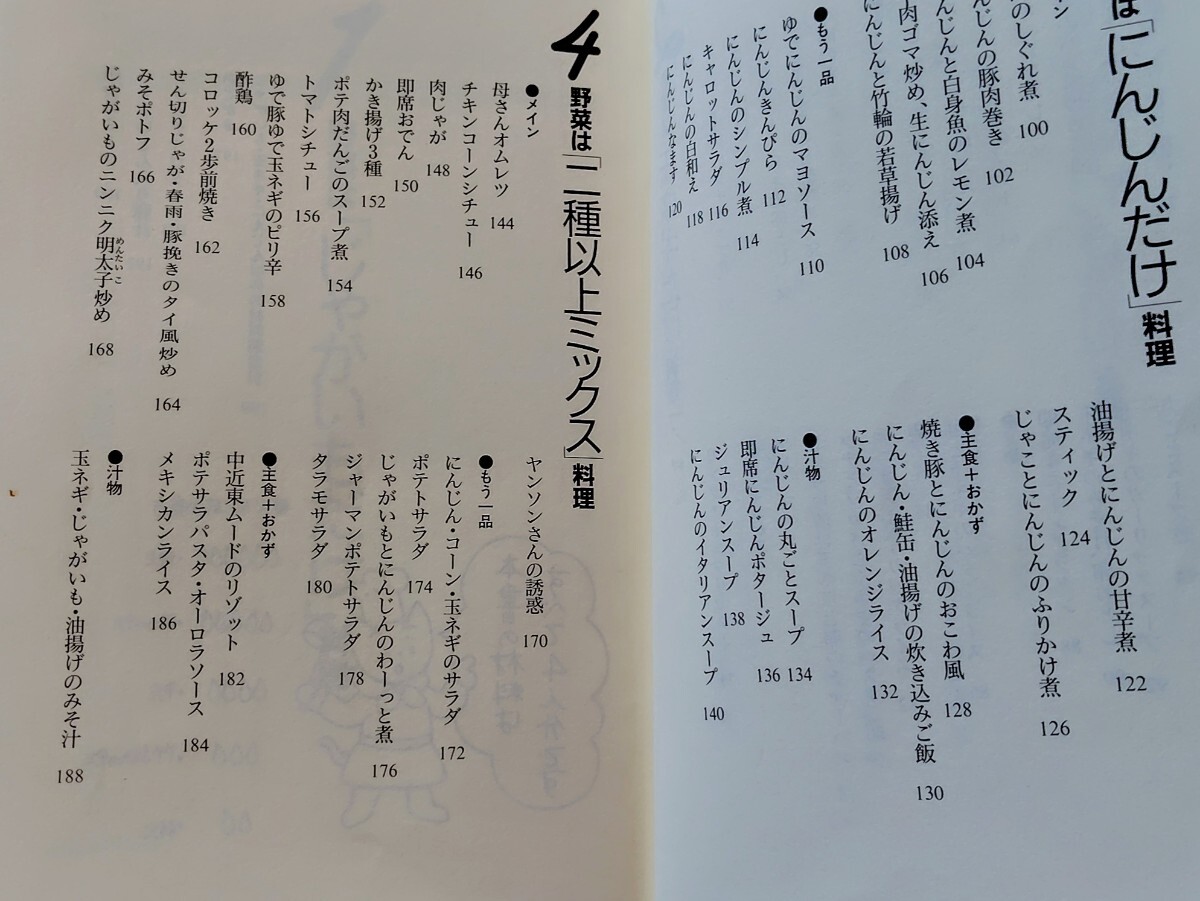 は「にんじんだけ」料理
イン
のしぐれ煮 100
んじんの豚肉巻き 102
んじんと白身魚のレモン煮 104
肉ゴマ炒め、生にんじん添え 106
にんじんと竹輪の若草揚げ 108
●もう一品
ゆでにんじんのマヨソース 110
にんじんきんぴら 112
にんじんのシンプル煮 114
キャロットサラダ 116
にんじんの白和え 118
にんじんなます 120
油揚げとにんじんの甘辛煮 122
スティック 124
じゃことにんじんのふりかけ煮 126
●主食+おかず
焼き豚とにんじんのおこわ風 128
にんじん・鮭缶・油揚げの炊き込みご飯 130
にんじんのオレンジライス 132
●汁物
にんじんの丸ごとスープ 134
即席にんじんポタージュ 136
ジュリアンスープ 138
にんじんのイタリアンスープ 140
4 野菜は「二種以上ミックス」料理
●メイン
母さんオムレツ 144
チキンコーンシチュー 146
肉じゃが 148
即席おでん 150
かき揚げ3種 152
ポテ肉だんごのスープ煮 154
トマトシチュー 156
ゆで豚ゆで玉ネギのピリ辛 158
酢鶏 160
コロッケ2歩前焼き 162
せん切りじゃが・春雨・豚挽きのタイ風炒め 164
みそポトフ 166
じゃがいものニンニク明太子炒め 168
めんたいこ
ヤンソンさんの誘惑 170
●もう一品
にんじん・コーン・玉ネギのサラダ 172
ポテトサラダ 174
じゃがいもとにんじんのわーっと煮 176
ジャーマンポテトサラダ 178
タラモサラダ 180
●主食+おかず
中近東ムードのリゾット 182
ポテサラパスタ・オーロラソース 184
メキシカンライス 186
●汁物
玉ネギ・じゃがいも・油揚げのみそ汁 188